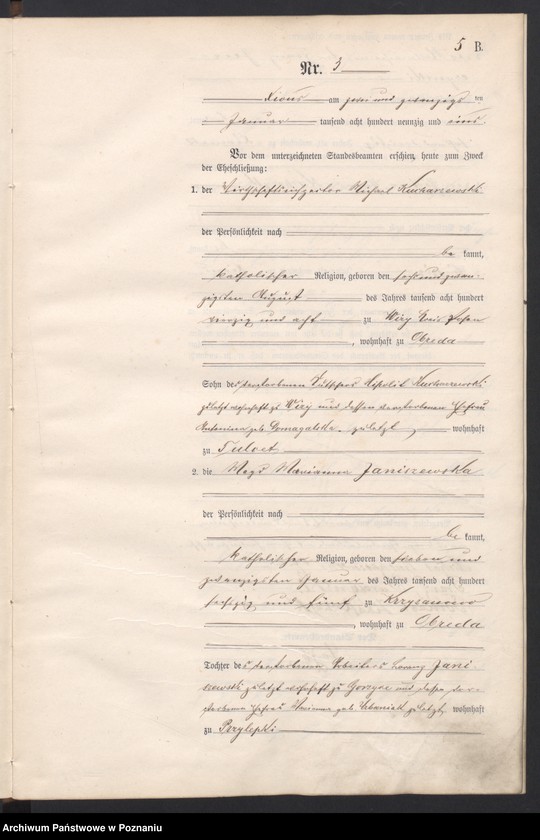 5 B.
Nr. 3
Xions am zwei und zwanzigsten
Januar tausend acht hundert neunzig und eins
Vor dem unterzeichneten Standesbeamten erschienen heute zum Zweck
der Eheschließung:
1. der Wirthschaftsinspector Michael Kucharzewski
der Persönlichkeit nach
be kannt,
katholischer Religion, geboren den sechs und zwan-
zigsten August des Jahres tausend acht hundert
vierzig und acht zu Wiry Kreis Posen
, wohnhaft zu Chrzda
Sohn des verstorbenen Hipolit Kucharzewski
zuletzt wohnhaft zu Wiry und dessen verstorbenen Ehefrau
Antonina geb. Domagalska, zuletzt wohnhaft
zu Tulce
2. die Magd Marianna Janiszewska
der Persönlichkeit nach
be kannt,
katholischer Religion, geboren den sieben und
zwanzigsten Januar des Jahres tausend acht hundert
sechszig und fünf zu
, wohnhaft zu
Tochter des verstorbenen Arbeiters Lorenz Jani-
szewski zuletzt wohnhaft zu und dessen ver-
storbenen Ehefrau geb. Urbaniak zuletzt wohnhaft
zu Przylepki
Archiwum Państwowe w Poznaniu